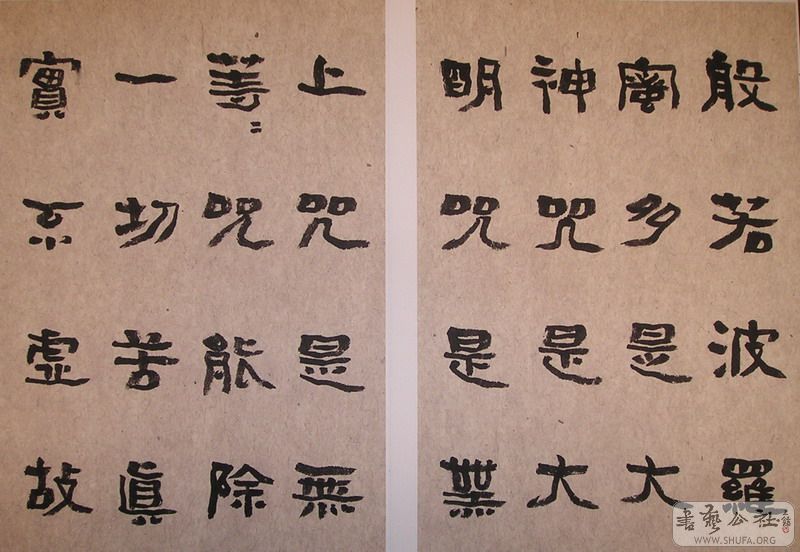 般若波羅
蜜多是大
神咒是大
明咒是無
上咒是無
等〻咒能除
一切苦眞
實不虛故
書藝公社
WWW.SHUFA.ORG